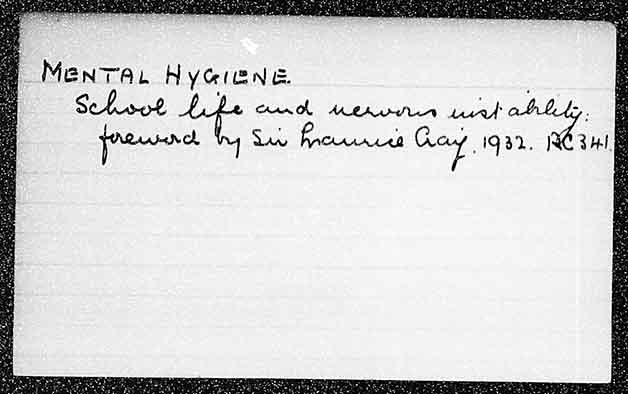 MENTAL HYGIENE.
School life and nervous instability:
foreword by Sir Maurice Craig. 1932. BC341.